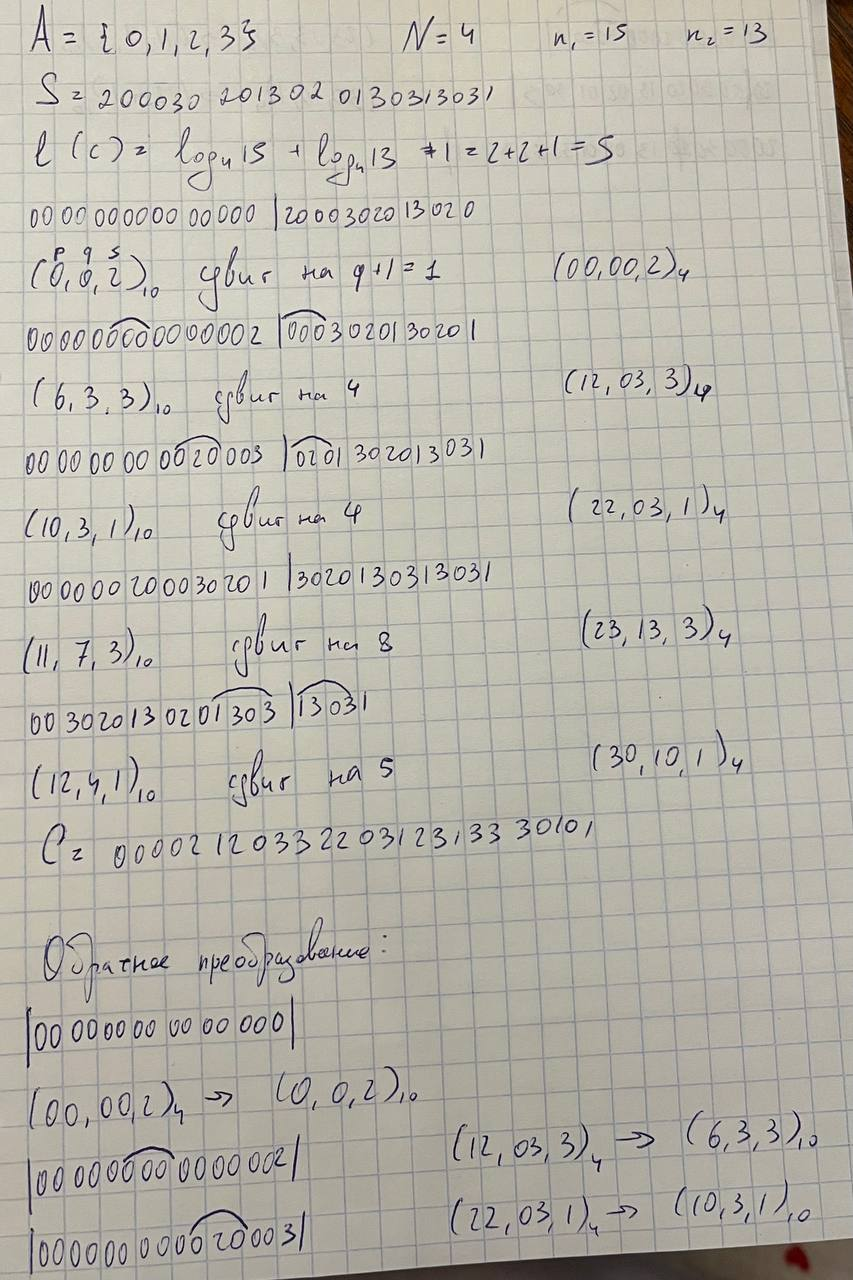 A = {0, 1, 2, 3} N = 4 n₁ = 15 n₂ = 13
S = 200030 201302 0130313031
l(c) = log₄15 + log₄13 + 1 = 2+2+1 = 5
000000000000000 | 2000302013020
p q s
(0, 0, 2)₁₀ сдвиг на q+1 = 1 (00, 00, 2)₄
000000000000002 | 0003020130201
(6, 3, 3)₁₀ сдвиг на 4 (12, 03, 3)₄
000000000020003 | 0201302013031
(10, 3, 1)₁₀ сдвиг на 4 (22, 03, 1)₄
000000200030201 | 3020130313031
(11, 7, 3)₁₀ сдвиг на 8 (23, 13, 3)₄
003020130201303 | 13031
(12, 4, 1)₁₀ сдвиг на 5 (30, 10, 1)₄
C = 0000212033220312313330101
Обратное преобразование:
|000000000000000|
(00, 00, 2)₄ → (0, 0, 2)₁₀
|000000000000002| (12, 03, 3)₄ → (6, 3, 3)₁₀
|000000000020003| (22, 03, 1)₄ → (10, 3, 1)₁₀